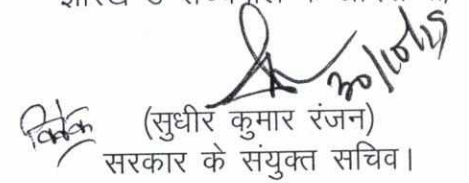 30/10/25
विवेक
(सुधीर कुमार रंजन)
सरकार के संयुक्त सचिव।